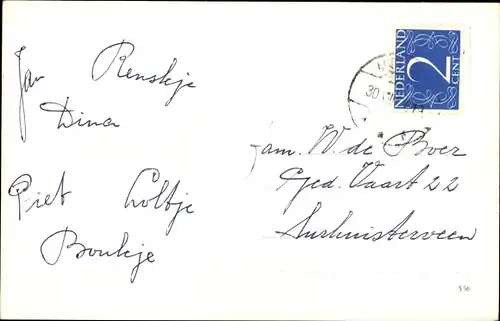 Jan Renskje
Dina
Piet Loltje
Boukje
NEDERLAND
2
CENT
30
Fam. W. de Boer
Ged. Vaart 22
Surhuisterveen